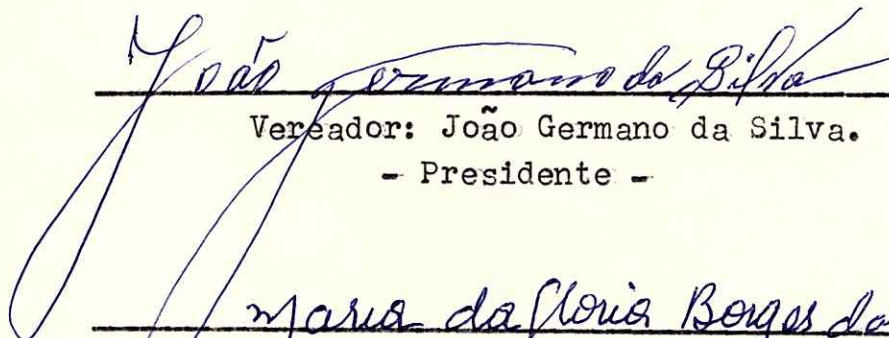 João Germano da Silva
Vereador: João Germano da Silva.
- Presidente -
Maria da Gloria Borges da